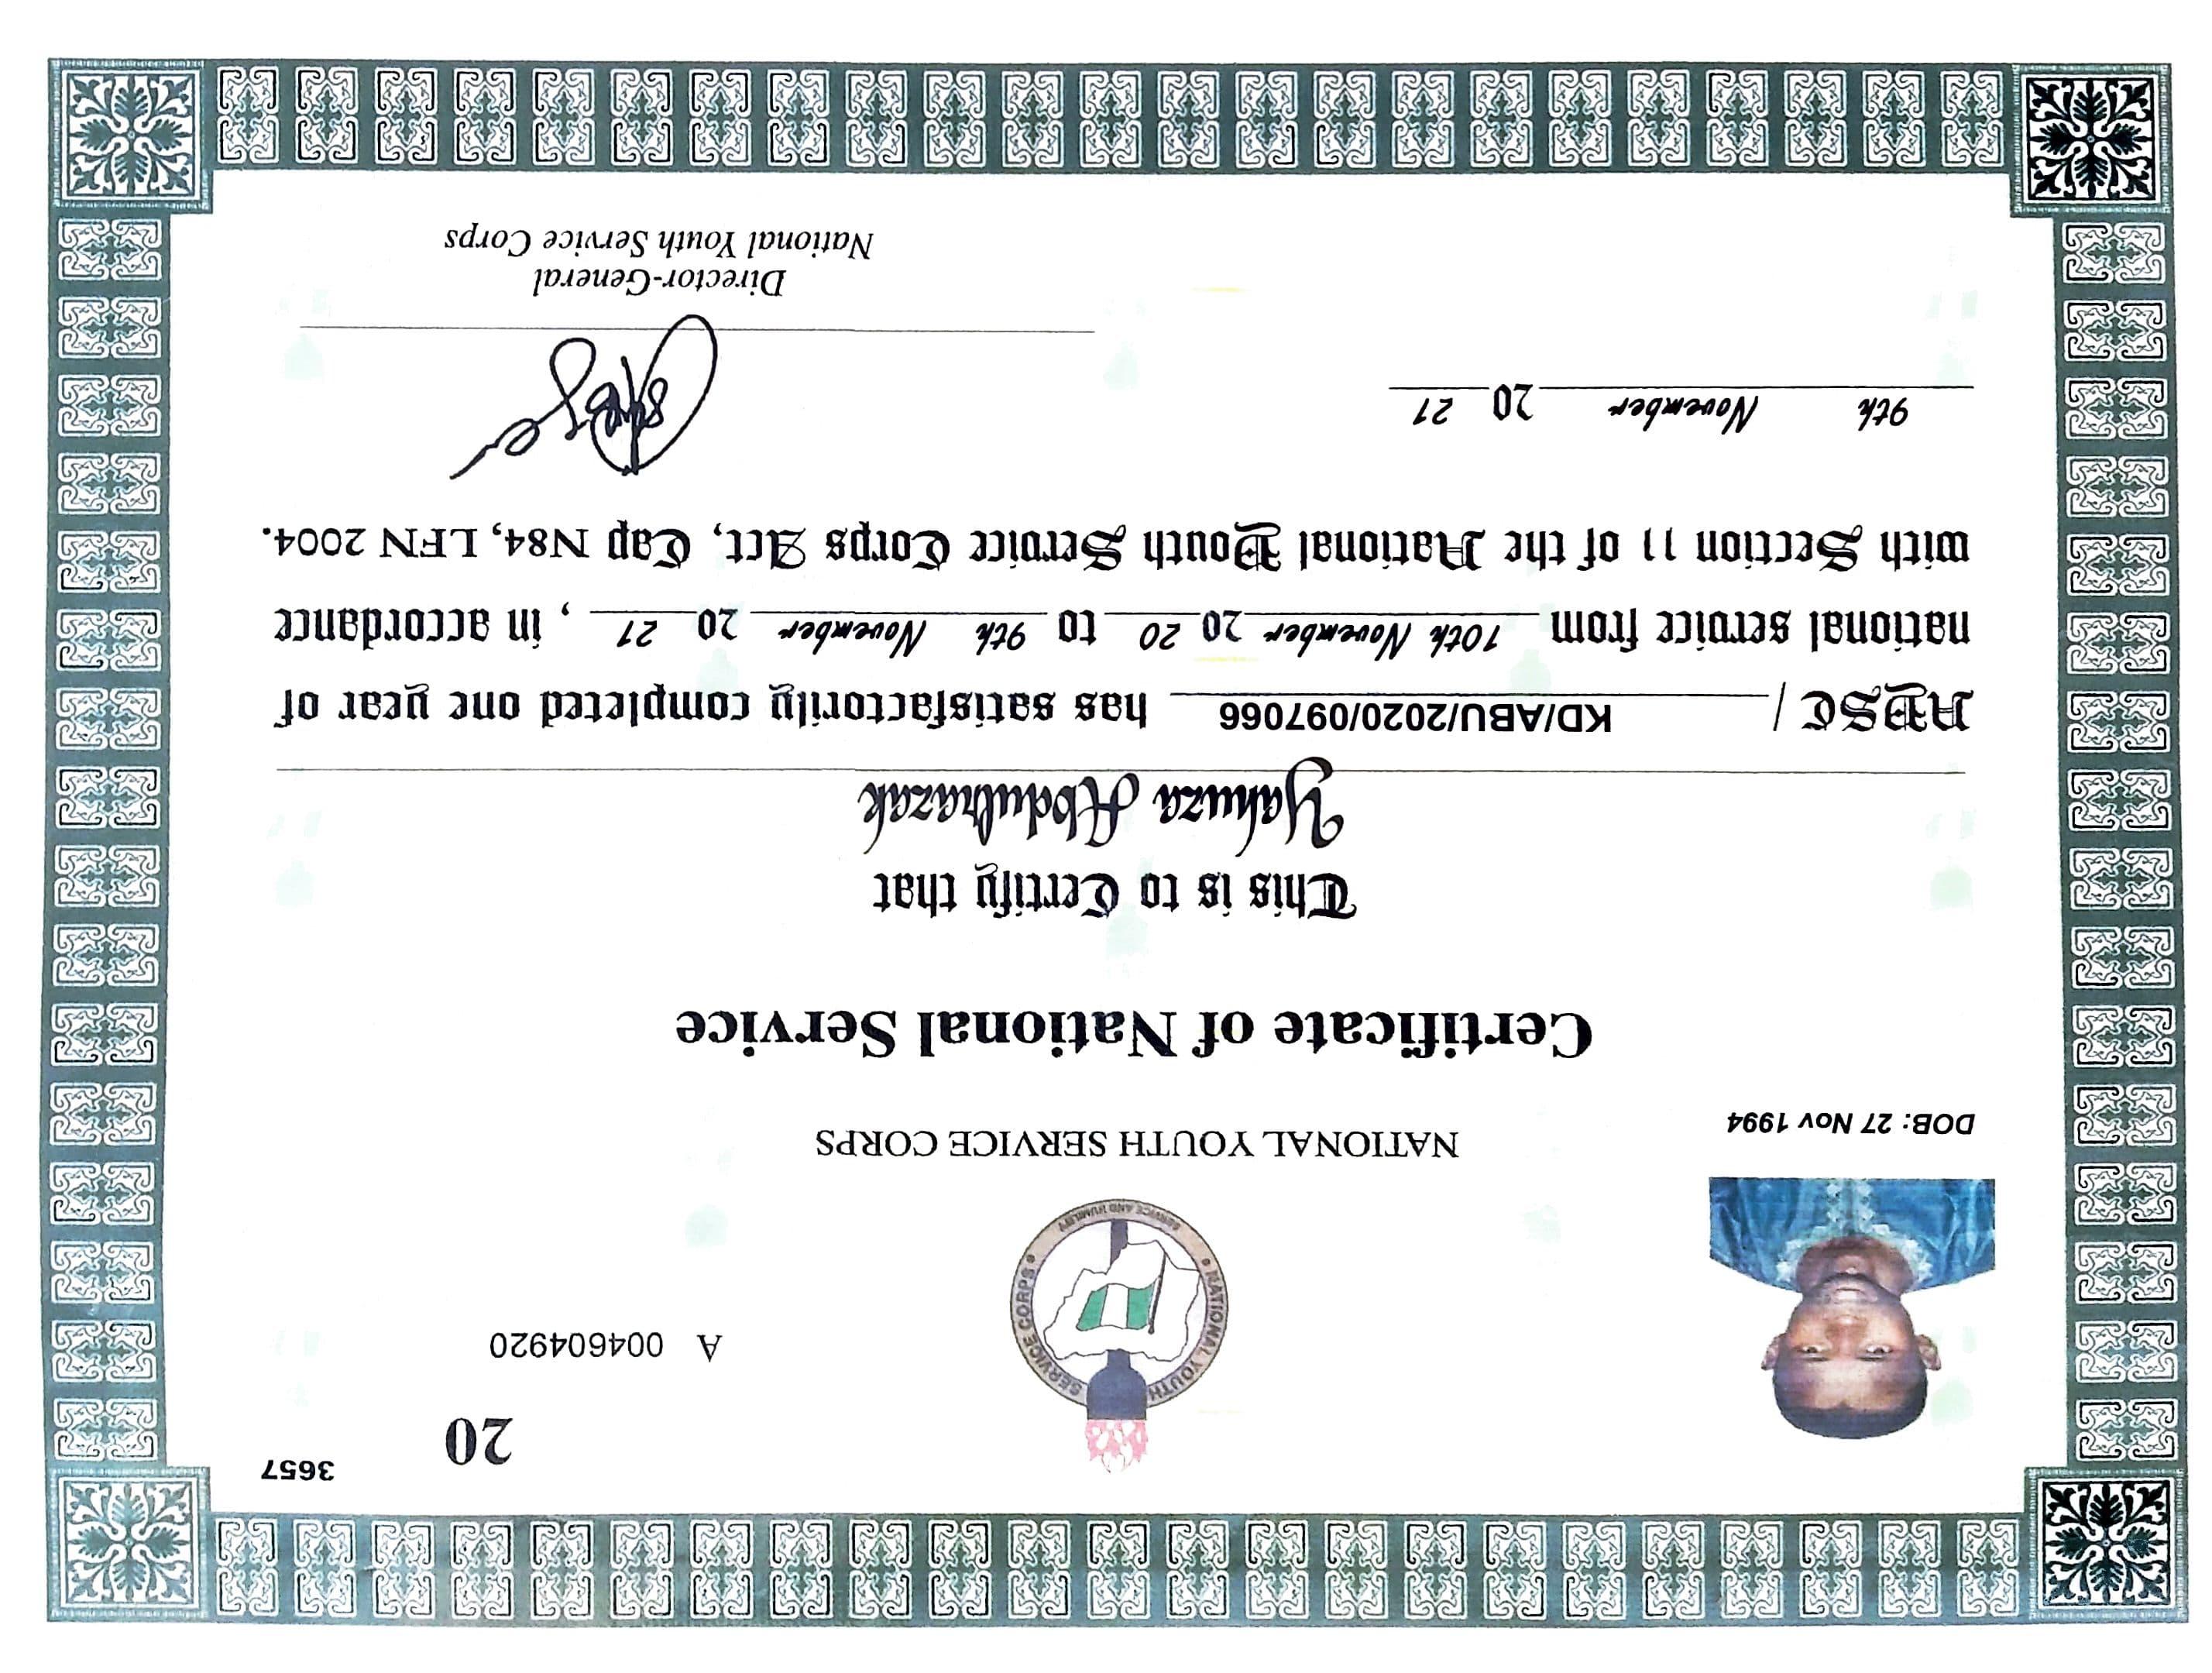 3657
20
A 004604920
NATIONAL YOUTH SERVICE CORPS
SERVICE AND HUMILITY
NATIONAL YOUTH SERVICE CORPS
DOB: 27 Nov 1994
Certificate of National Service
This is to Certify that
Yahuza Abdulrazak
NYSC / KD/ABU/2020/097066 has satisfactorily completed one year of
national service from 10th November 20 20 to 9th November 20 21 , in accordance
with Section 11 of the National Youth Service Corps Act, Cap N84, LFN 2004.
9th November 20 21
Director-General
National Youth Service Corps